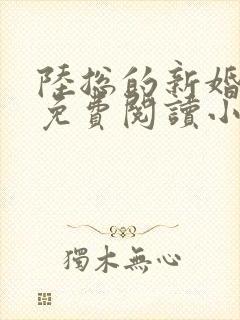 陸總的新婚
免費閱讀小
獨木無心